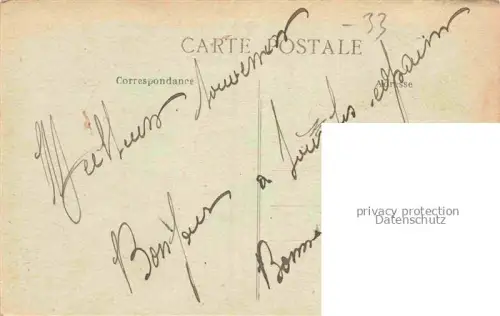 - 33
CARTE POSTALE
Correspondance
Adresse
Meilleurs souvenirs
Bonjour à tous les copains
Bonne
privacy protection
Datenschutz